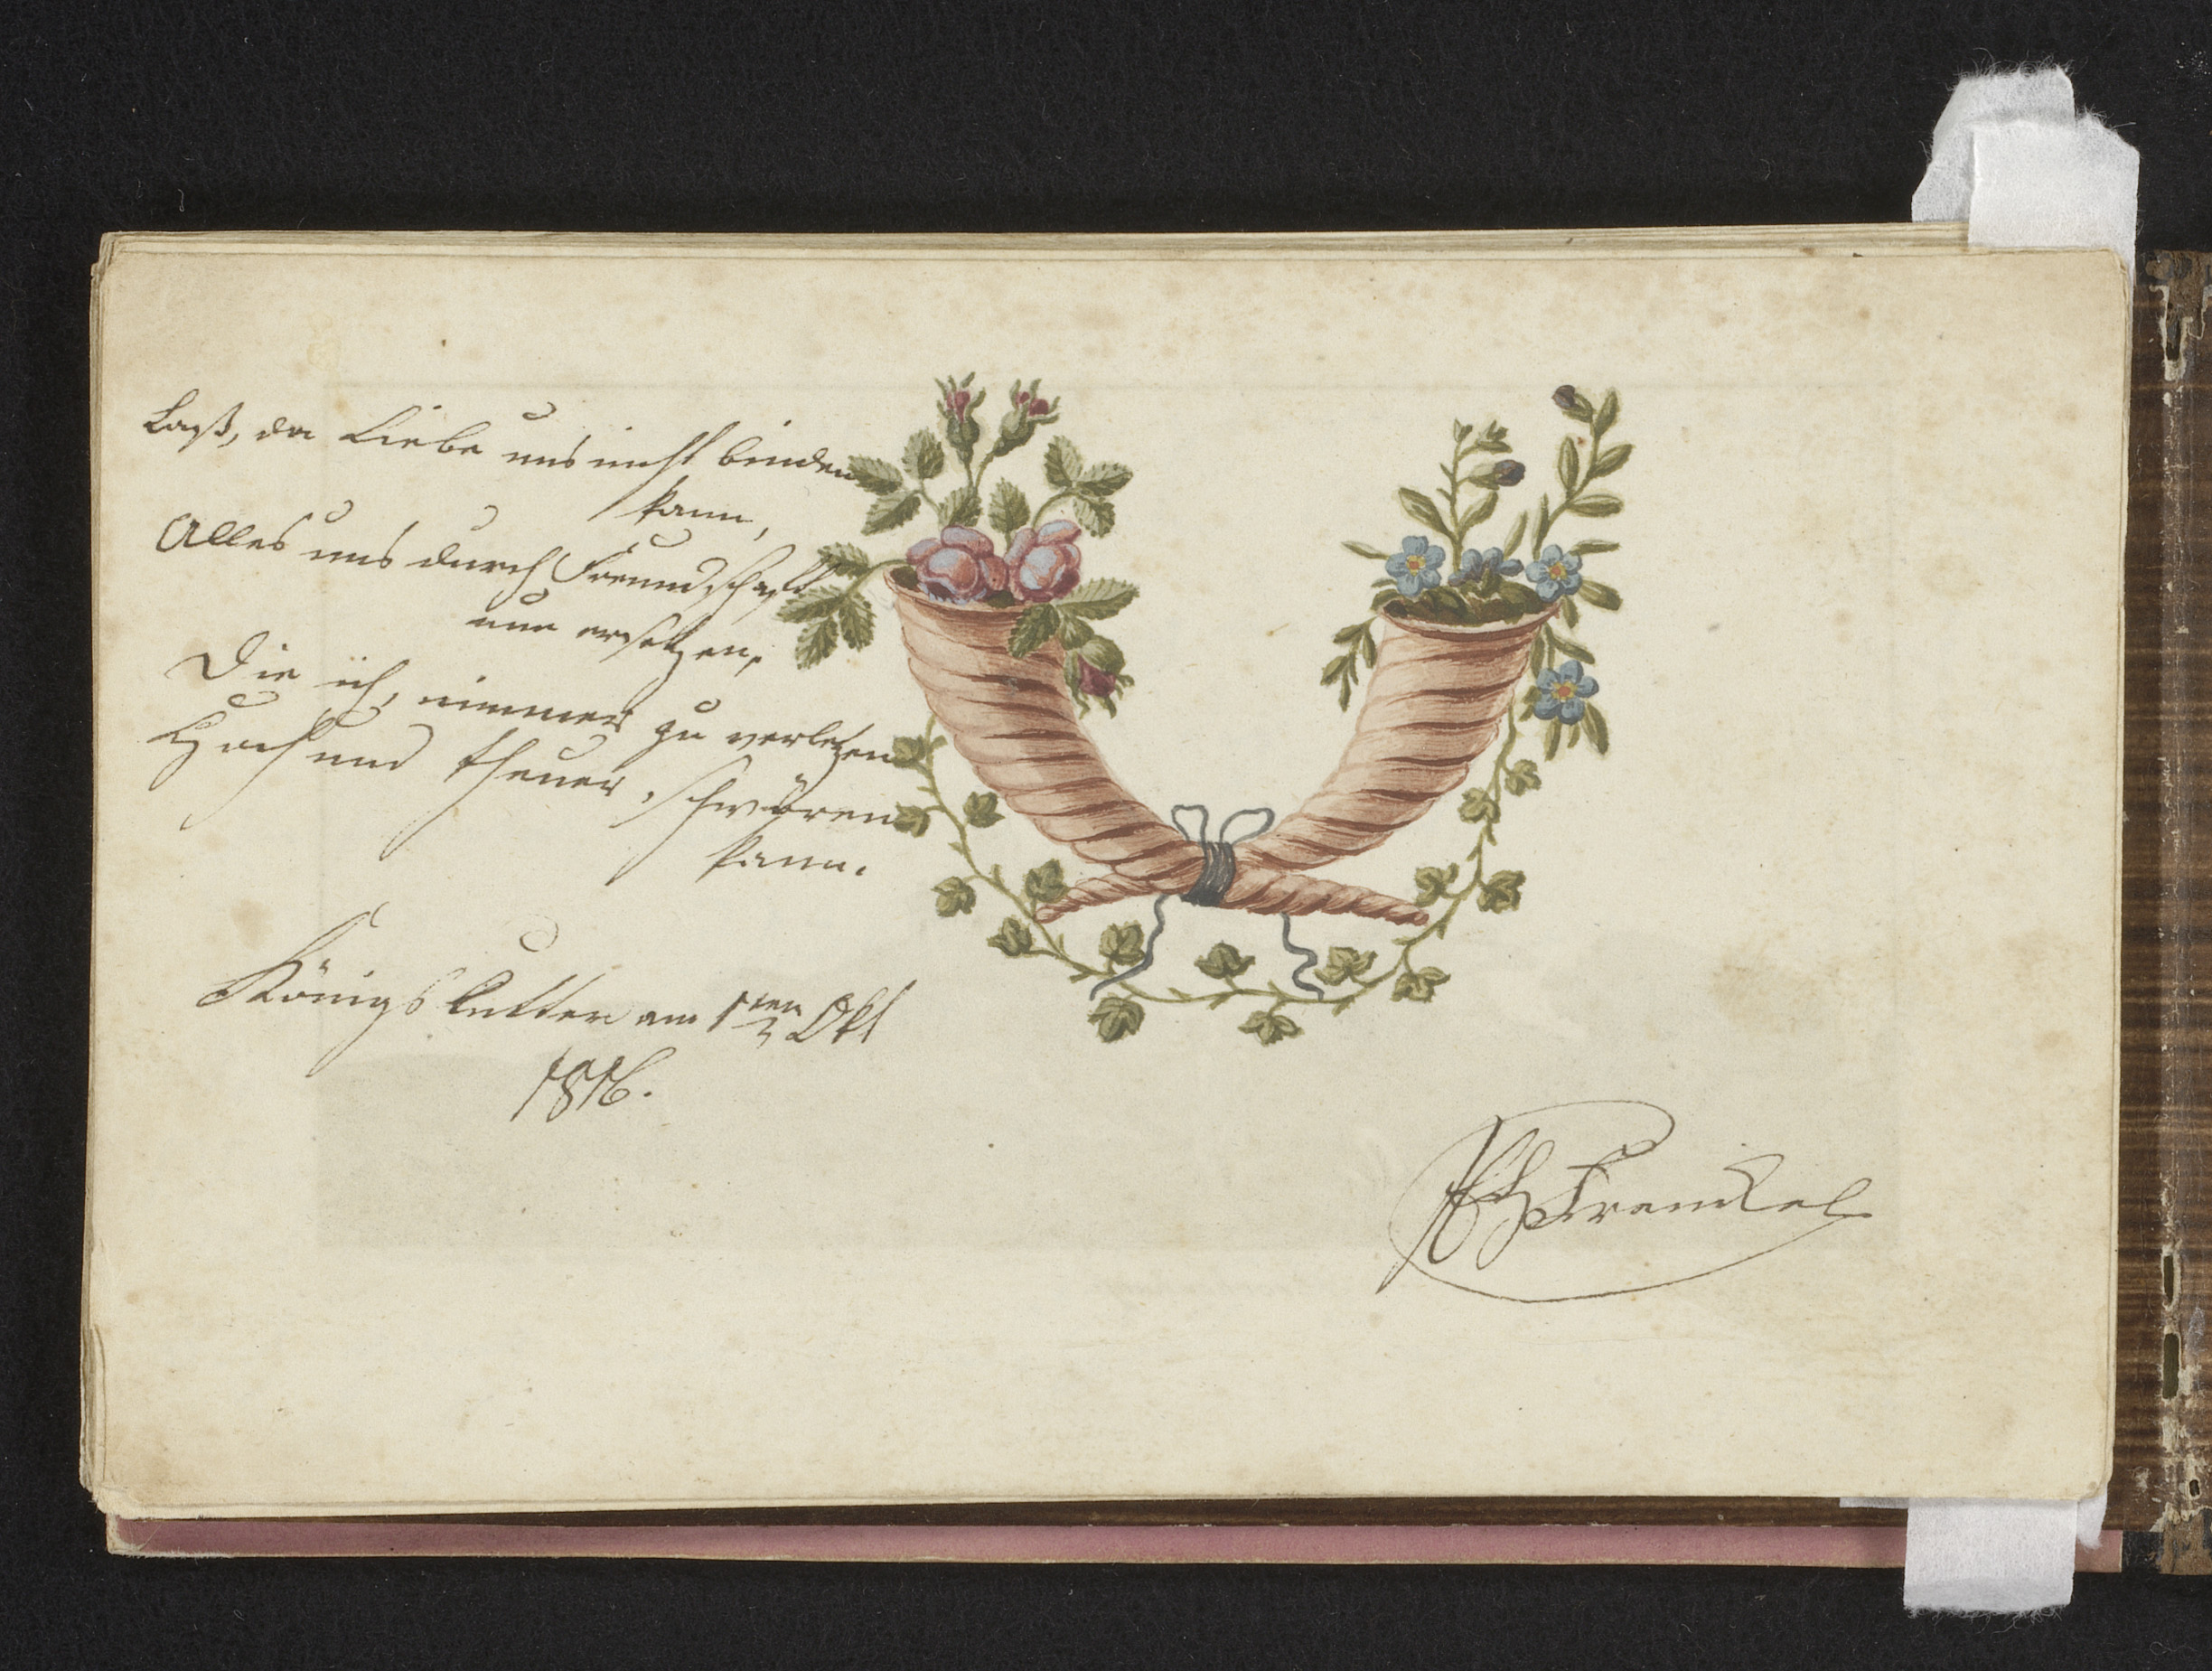 Laß, da Liebe uns nicht binden
kann,
Alles uns durch Freundschaft
nun ersetzen,
Die ich, nimmer zu verletzen
Hoch und theuer, schwören
kann.
Königslutter am 1ten Okt
1816.
Frenckel